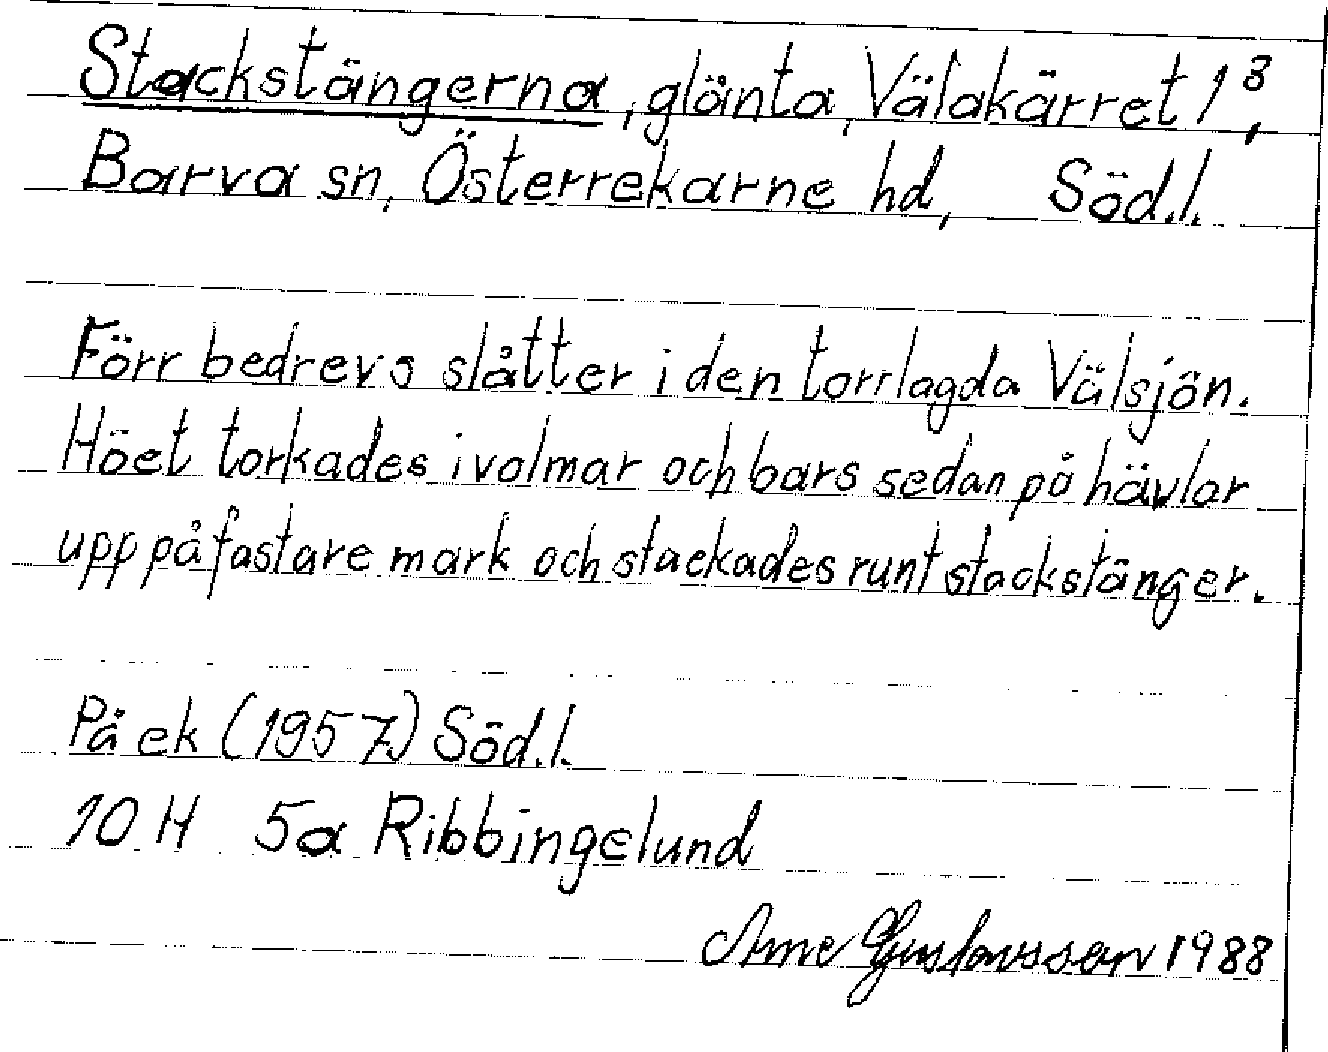 Stackstängerna, glänta, Välakärret 1⁸,
Barva sn, Österrekarne hd, Söd.l.
Förr bedrevs slåtter i den torrlagda Välsjön.
Höet torkades i volmar och bars sedan på hävlar
upp på fastare mark och stackades runt stackstänger.
På ek (1957) Söd.l.
10 H 5a Ribbingelund
Arne Gustavsson 1988